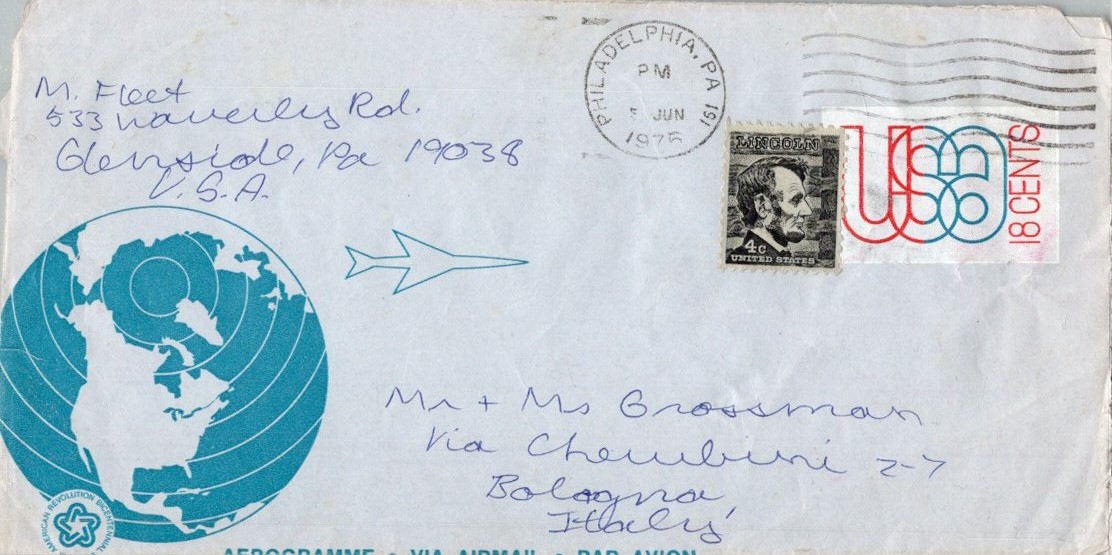 M. Fleet
533 Waverley Rd.
Glenside, Pa 19038
U.S.A.
PHILADELPHIA, PA 191
PM
5 JUN
1975
LINCOLN
4c
UNITED STATES
USA
18 CENTS
Mr + Ms Grossman
Via Cherubini 2-7
Bologna
Italy
AMERICAN REVOLUTION BICENTENNIAL
AEROGRAMME • VIA AIRMAIL • PAR AVION